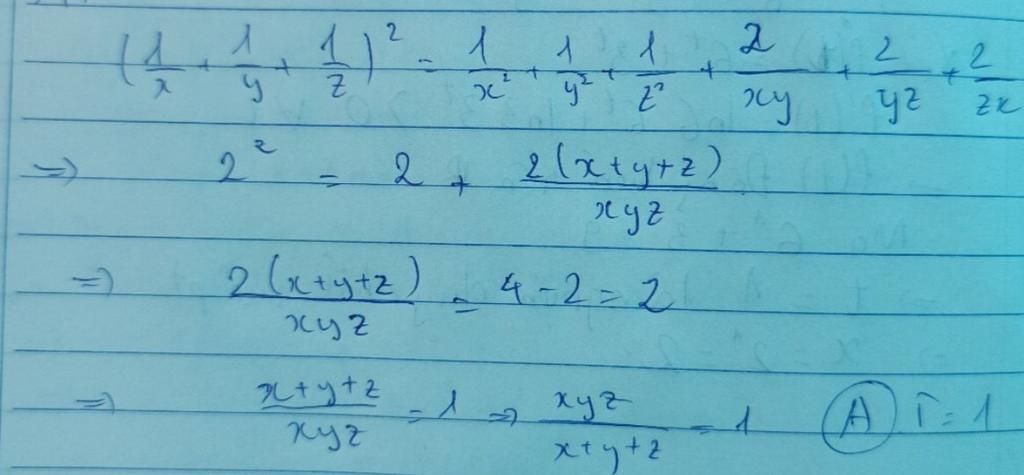 (1/x + 1/y + 1/z)² = 1/x² + 1/y² + 1/z² + 2/xy + 2/yz + 2/zx
=> 2² = 2 + 2(x+y+z)/xyz
=> 2(x+y+z)/xyz = 4 - 2 = 2
=> x+y+z/xyz = 1 => xyz/x+y+z = 1 (A) T = 1